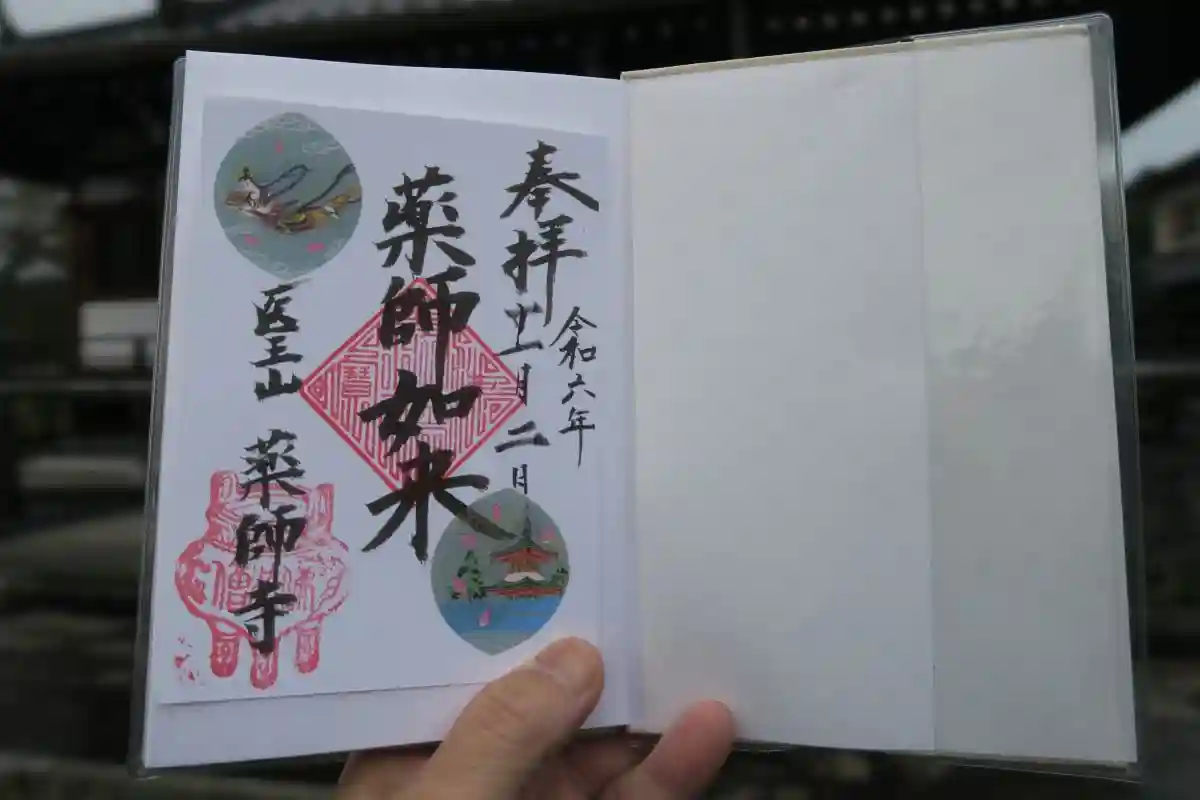 奉拝
令和六年
十一月二日
薬師如来
医王山 薬師寺